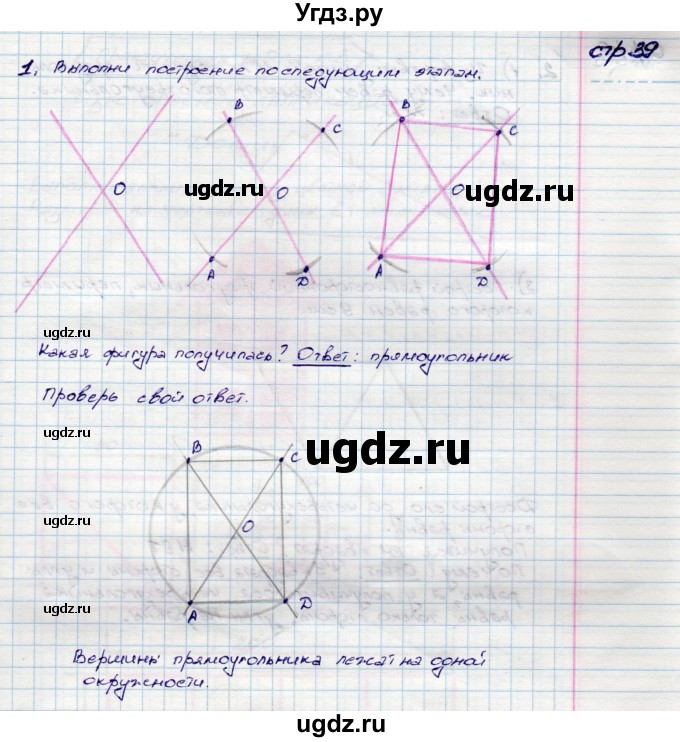 Угдз.ру
стр.39
1. Выполни построение по следующим этапам.
B B
C C
O ugdz.ru O ugdz.ru O
A A
D D
ugdz.ru
Какая фигура получилась? Ответ: прямоугольник
Проверь свой ответ.
ugdz.ru
B C ugdz.ru
ugdz.ru O
A D
ugdz.ru
Вершины прямоугольника лежат на одной
окружности.
ugdz.ru
ugdz.ru